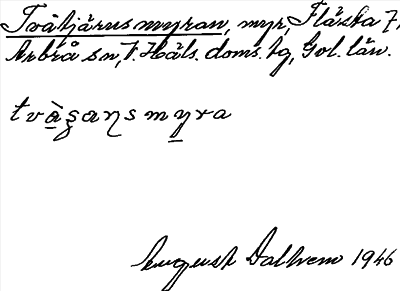 Tvåtjärnsmyran, myr, Flästa 7,
Arbrå sn, V. Häls. doms. hg, Gvl. län.
tvàʂaɳsmyra
August Dalhem 1946